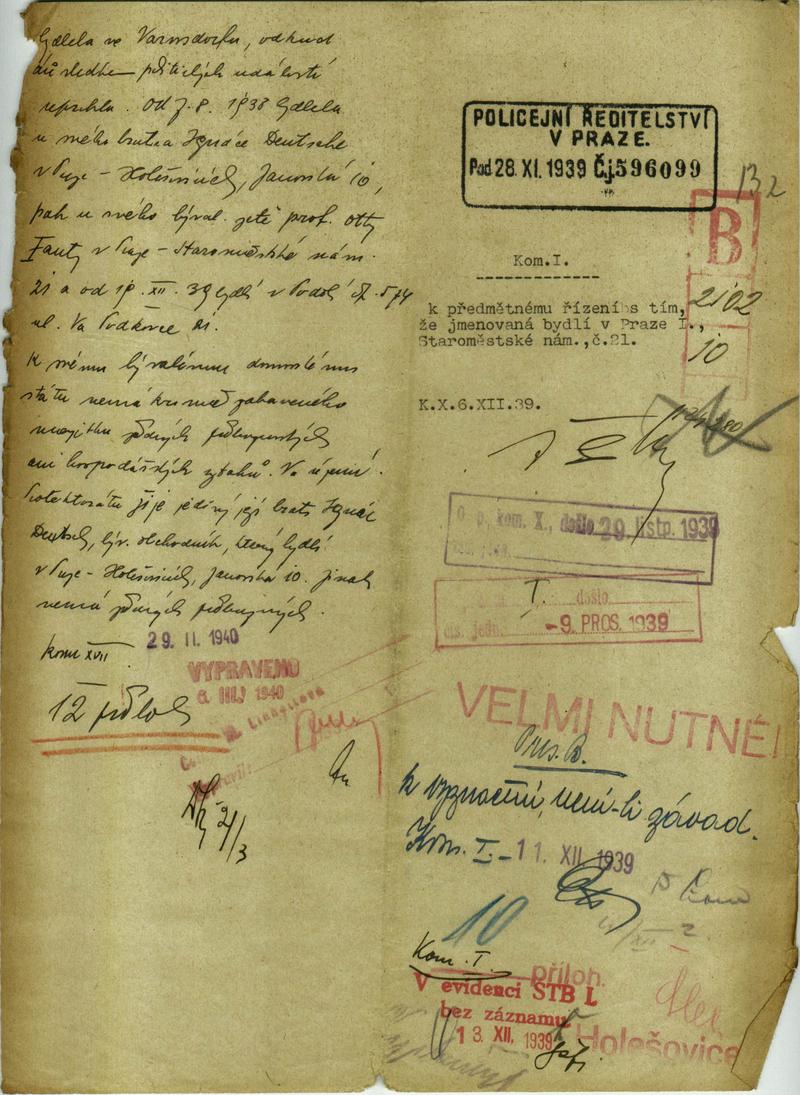 bydlela ve Varnsdorfu, odkud
následkem politických událostí
uprchla. Od 7.8. 1938 bydlela
u svého bratra Ignáce Deutsche
v Praze - Holešovicích, Janovská 10,
pak u svého býval. zetě prof. Otty
Fanty v Praze - Staroměstské nám.
21 a od 19. XII. 39 bydlí v Podolí čp. 574
ul. Na Podkovce
K svému bývalému domovskému
státu nemá kromě zabaveného
majetku žádných příbuzenských
ani hospodářských vztahů. Na území
Protektorátu žije jediný její bratr Ignác
Deutsch, býv. obchodník, který bydlí
v Praze - Holešovicích, Janovská 10. Jinak
nemá žádných příbuzných.
29. II. 1940
kom XVII
VYPRAVENO
III. 1940
12 příloh
2/3
POLICEJNÍ ŘEDITELSTVÍ
V PRAZE.
Pod 28. XI. 1939 Č.j. 596099
132
B
2102
10
Kom.I.
k předmětnému řízení s tím,
že jmenovaná bydlí v Praze I.,
Staroměstské nám.,č.21.
K.X.6.XII.39.
O. p. kom. X., došlo 29. listp. 1939
I. došlo
čís. jedn. -9. PROS. 1939
VELMI NUTNÉ!
Pres. B.
k vyznačení, není-li závad.
Kom. I. - 11. XII 1939
10
Kom. I.
příloh.
V evidenci STB I.
bez záznamu
13. XII. 1939
Holešovice